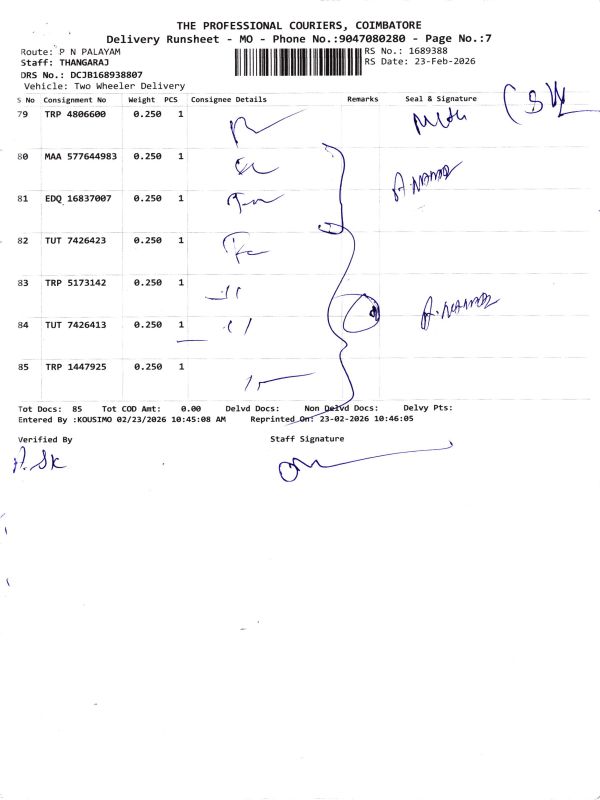 THE PROFESSIONAL COURIERS, COIMBATORE
Delivery Runsheet - MO - Phone No.:9047080280 - Page No.:7
Route: P N PALAYAM RS No.: 1689388
Staff: THANGARAJ RS Date: 23-Feb-2026
DRS No.: DCJB168938807
Vehicle: Two Wheeler Delivery
S No Consignment No Weight PCS Consignee Details Remarks Seal & Signature
79 TRP 4806600 0.250 1
80 MAA 577644983 0.250 1
81 EDQ 16837007 0.250 1
82 TUT 7426423 0.250 1
83 TRP 5173142 0.250 1
84 TUT 7426413 0.250 1
85 TRP 1447925 0.250 1
Tot Docs: 85 Tot COD Amt: 0.00 Delvd Docs: Non Delvd Docs: Delvy Pts:
Entered By :KOUSIMO 02/23/2026 10:45:08 AM Reprinted On: 23-02-2026 10:46:05
Verified By Staff Signature